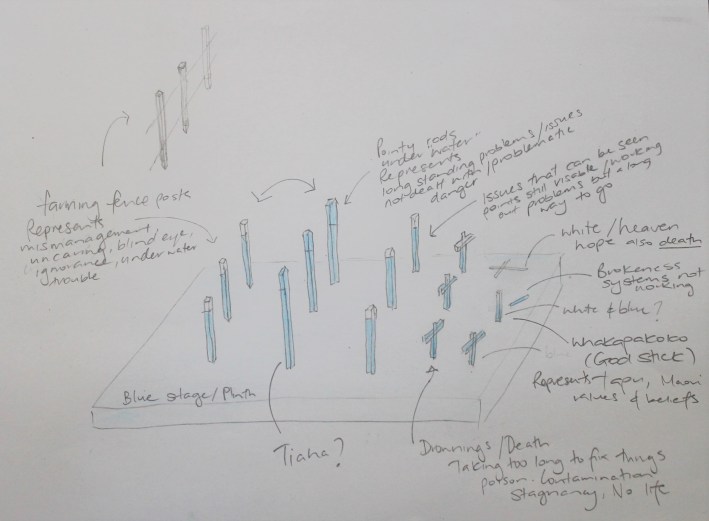 farming fence posts
Represents
mismanagement,
uncaring, blind eye,
ignorance, underwater
trouble
Pointy rods
under water -
Represents
long standing problems/issues
not dealt with/problematic
danger
Issues that can be seen
points still visable/working
out problems but a long
way to go
white/heaven
hope also death
Brokeness
systems not
working
white & blue?
Whakapakoko
(God stick)
Represents tapu, Maori
values & beliefs
Blue stage/Plinth
Tiaha?
Drownings/Death
Taking too long to fix things
poison. Contamination
Stagnancy, No life